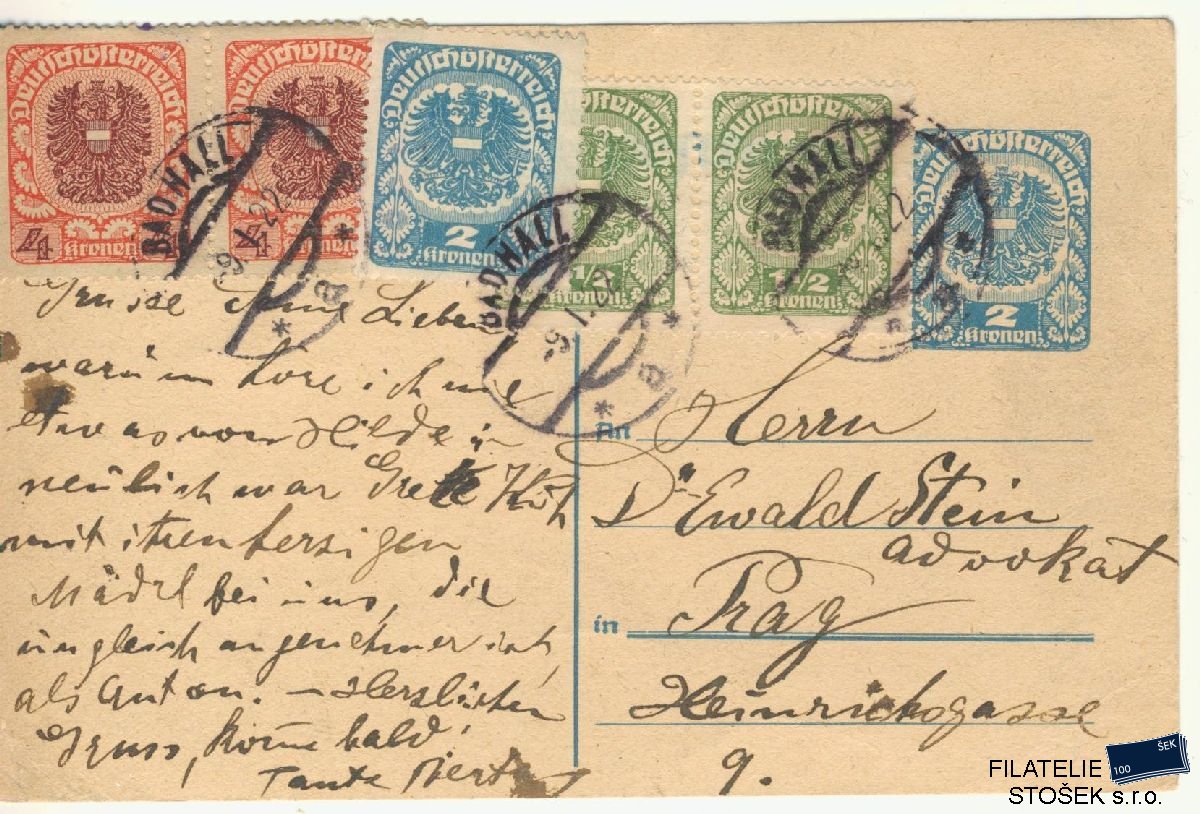 Deutschösterreich
4 Kronen
Deutschösterreich
4 Kronen
Deutschösterreich
2 Kronen
Deutschösterreich
1½ Kronen
Deutschösterreich
1½ Kronen
Deutschösterreich
2 Kronen
BAD HALL
9.I.22
* a *
BAD HALL
9.I.2
* a *
BAD HALL
Grüsse Lieben
warum höre ich nie
etwas von Hilde
neulich war Grete
mit ihren herzigen
Mädel bei uns, die
ungleich angenehmer ist,
als Anton. – Herzlichen
Gruss, kom̄e bald!
Tante Berta
An Herrn
Dr Ewald Stein
advokat
in Prag
Heinrichsgasse
9.
FILATELIE
STOŠEK s.r.o.
100 ŠEK